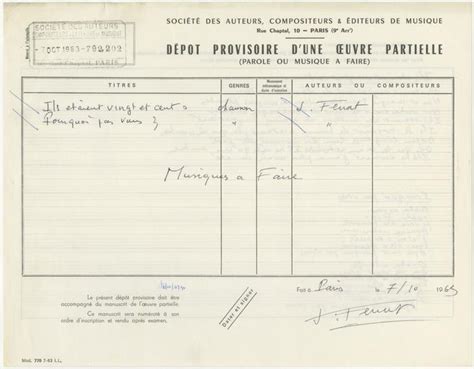 SOCIÉTÉ DES AUTEURS, COMPOSITEURS & ÉDITEURS DE MUSIQUE
Rue Chaptal, 10 - PARIS (9e Arrt)
SOCIÉTÉ DES AUTEURS
-7 OCT 1963-792202
PARIS
DÉPOT PROVISOIRE D'UNE ŒUVRE PARTIELLE
(PAROLE OU MUSIQUE A FAIRE)
TITRES
GENRES
AUTEURS OU COMPOSITEURS
Ils étaient vingt et cent
chanson
J. Ferrat
Pourquoi pas vous
"
"
Musiques à Faire
Le présent dépôt provisoire doit être
accompagné du manuscrit de l'œuvre partielle.
Ce manuscrit sera numéroté à son
ordre d'inscription et rendu après examen.
Dater et signer
Fait à Paris le 7/10 1963
J. Ferrat
Mod. 770 7-63 I.L.